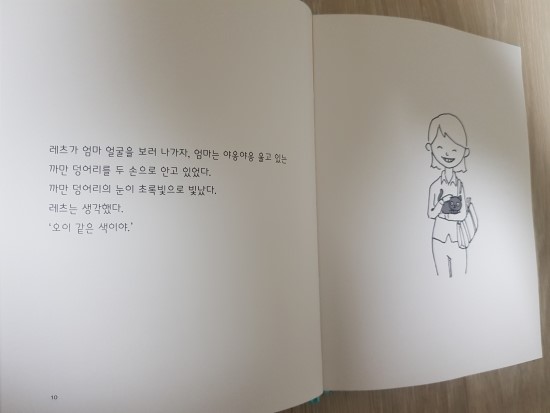 레츠가 엄마 얼굴을 보러 나가자, 엄마는 야옹야옹 울고 있는
까만 덩어리를 두 손으로 안고 있었다.
까만 덩어리의 눈이 초록빛으로 빛났다.
레츠는 생각했다.
‘오이 같은 색이야.’
10